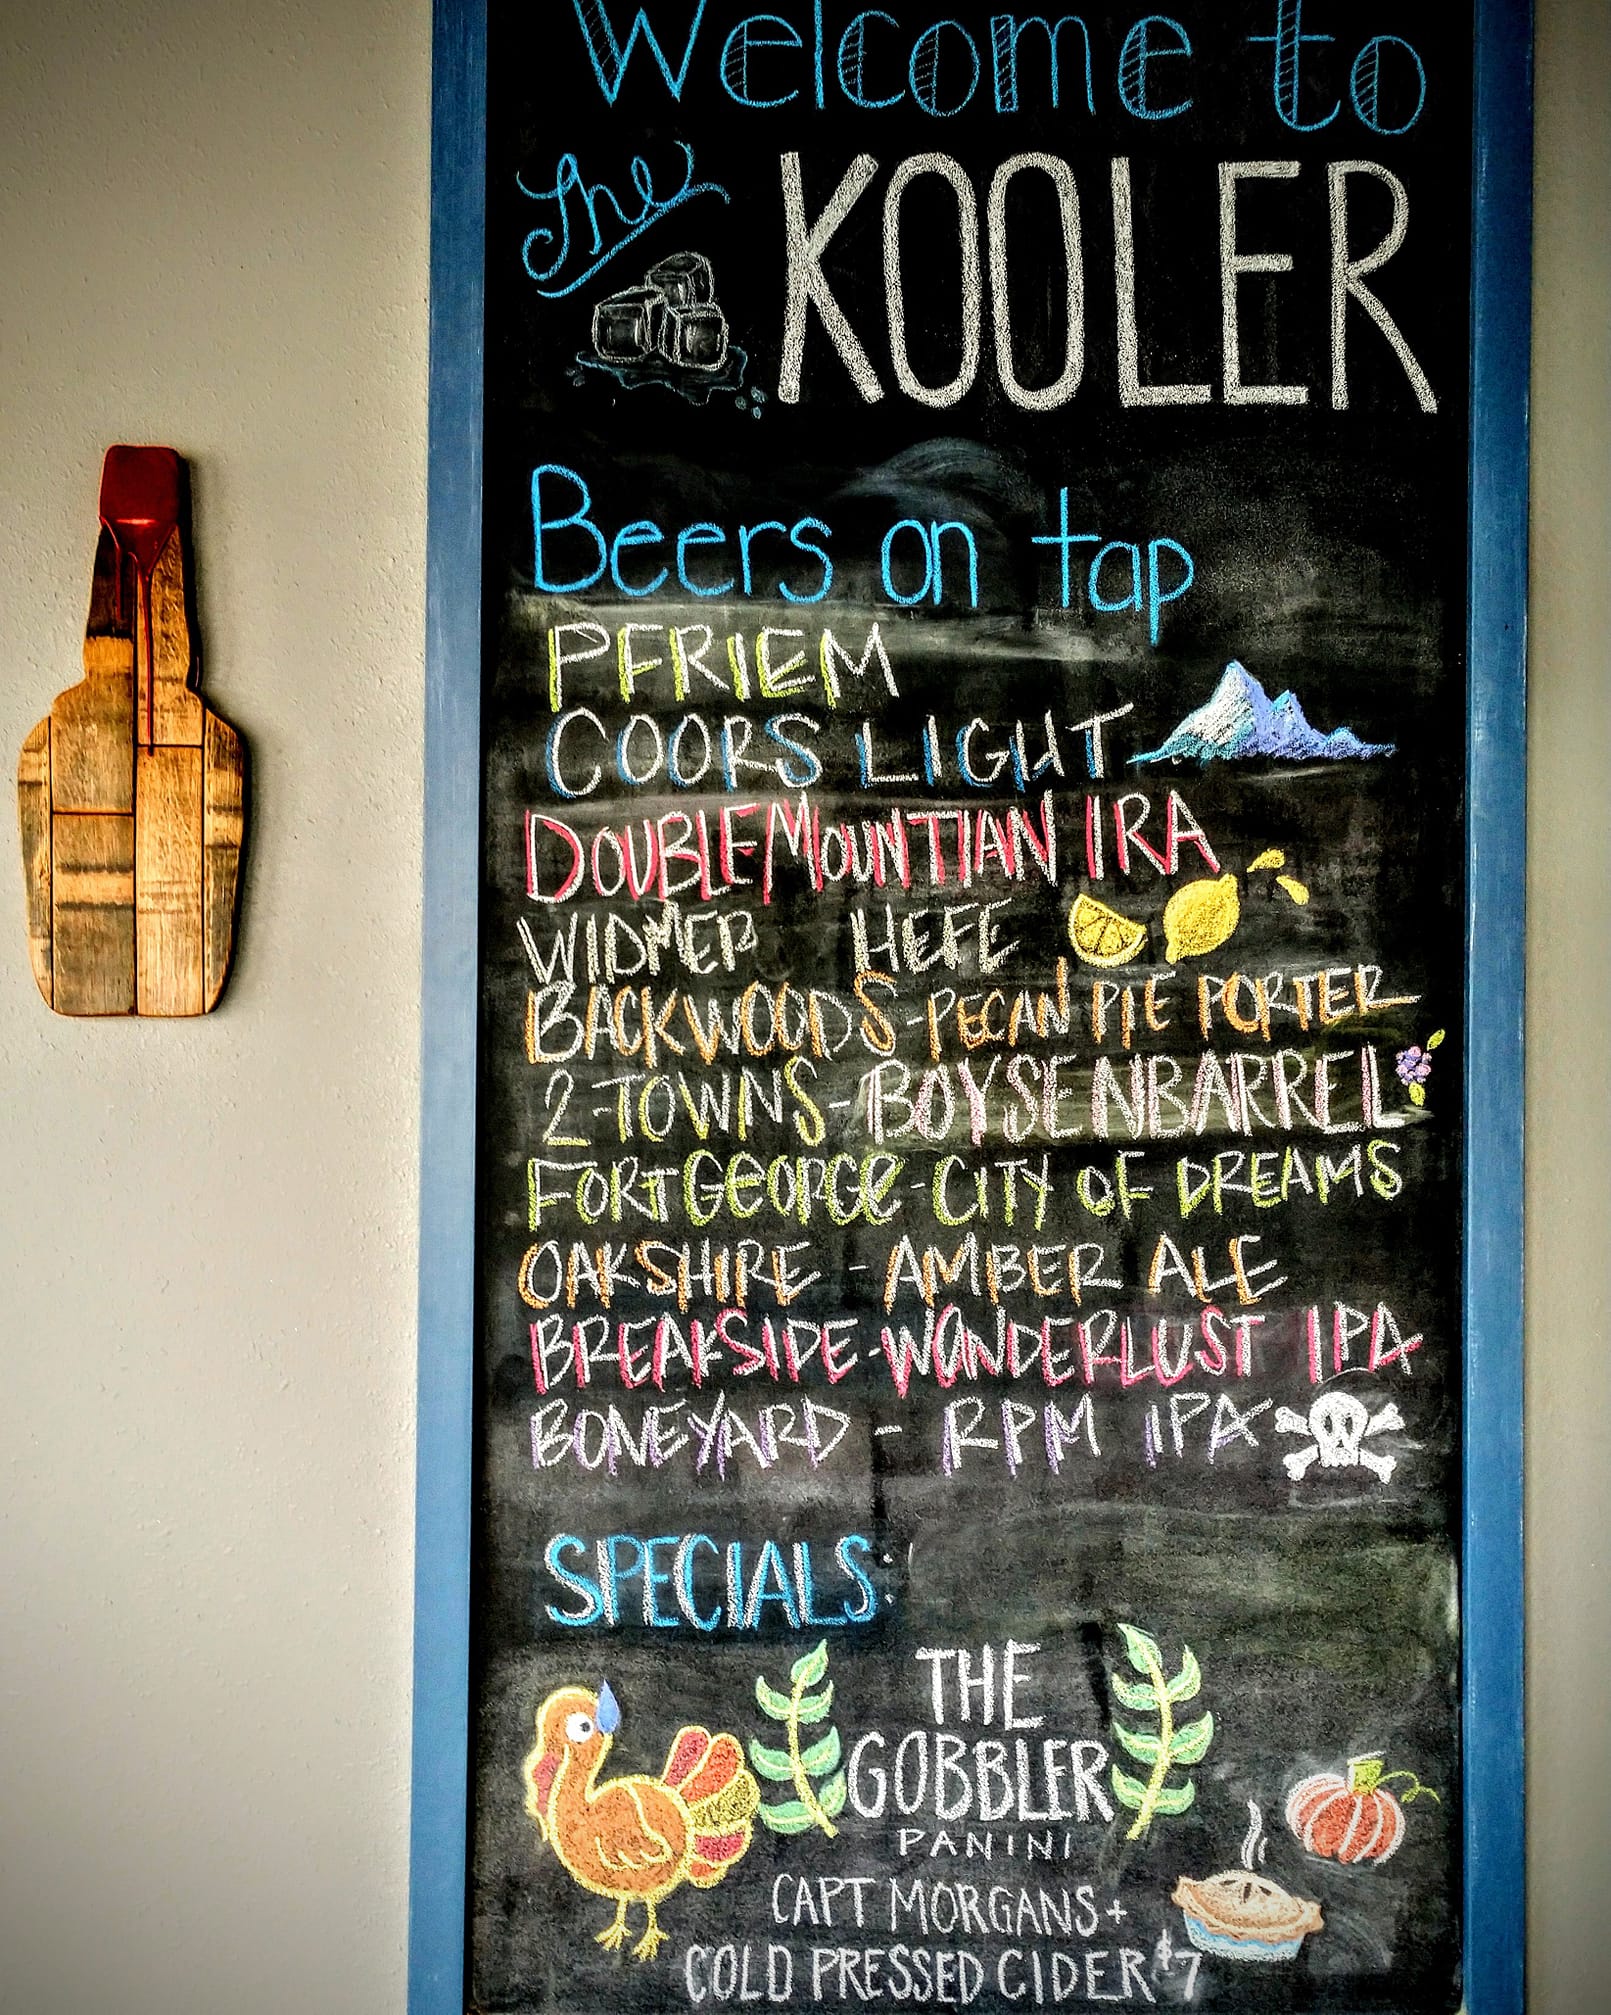 Welcome to
the KOOLER
Beers on tap
PFRIEM
COORS LIGHT
DOUBLE MOUNTIAN IRA
WIDMER HEFE
BACKWOODS-PECAN PIE PORTER
2-TOWNS-BOYSENBARREL
FORT GEORGE-CITY OF DREAMS
OAKSHIRE - AMBER ALE
BREAKSIDE-WONDERLUST IPA
BONEYARD - RPM IPA
SPECIALS:
THE
GOBBLER
PANINI
CAPT MORGANS+
COLD PRESSED CIDER $7